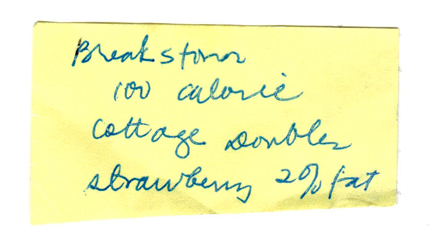 Breakstone
100 calorie
Cottage Doubles
strawberry 2% fat